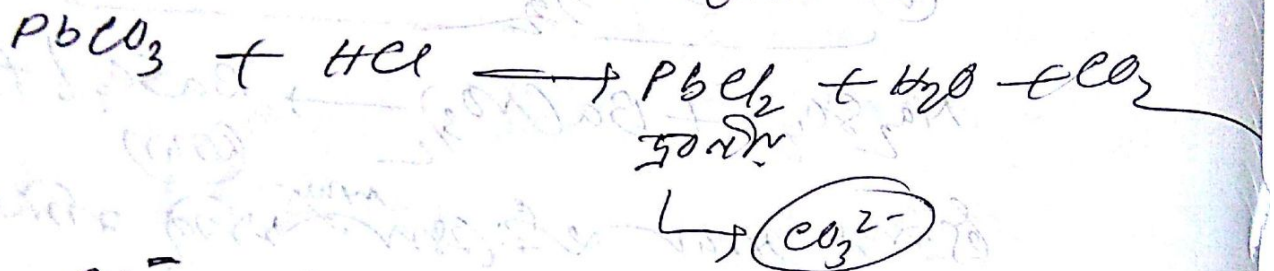 PbCO₃ + HCl ⟶ PbCl₂ + H₂O + CO₂
দ্রবনীয়
↳ CO₃²⁻